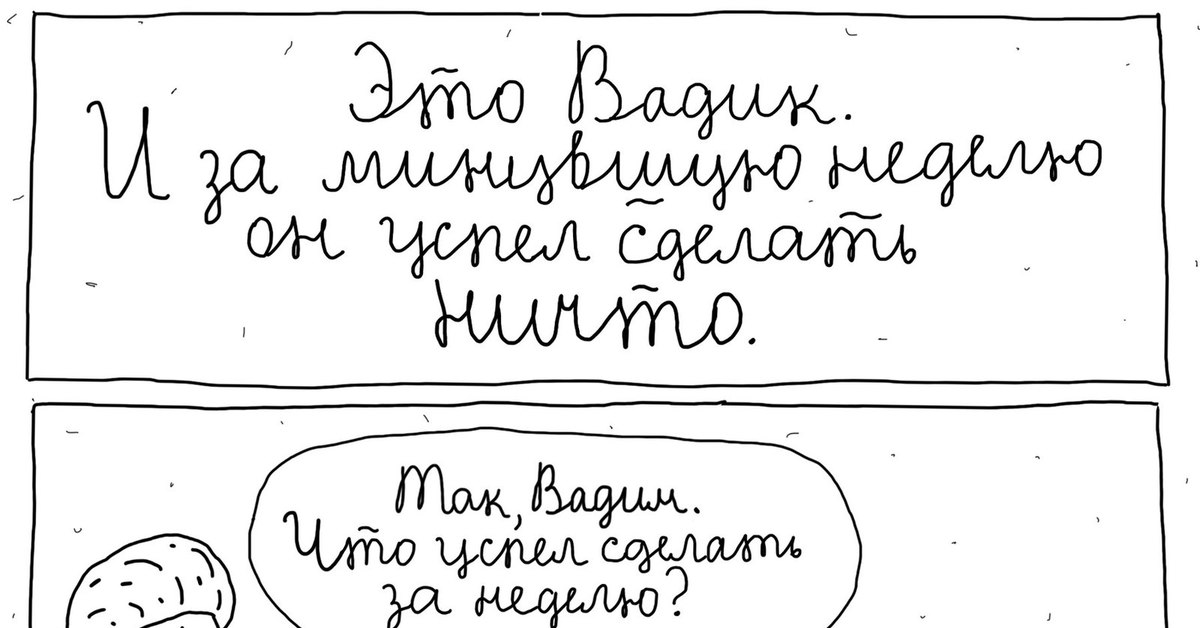 Это Вадик.
И за минувшую неделю
он успел сделать
ничто.
Так, Вадим.
Что успел сделать
за неделю?